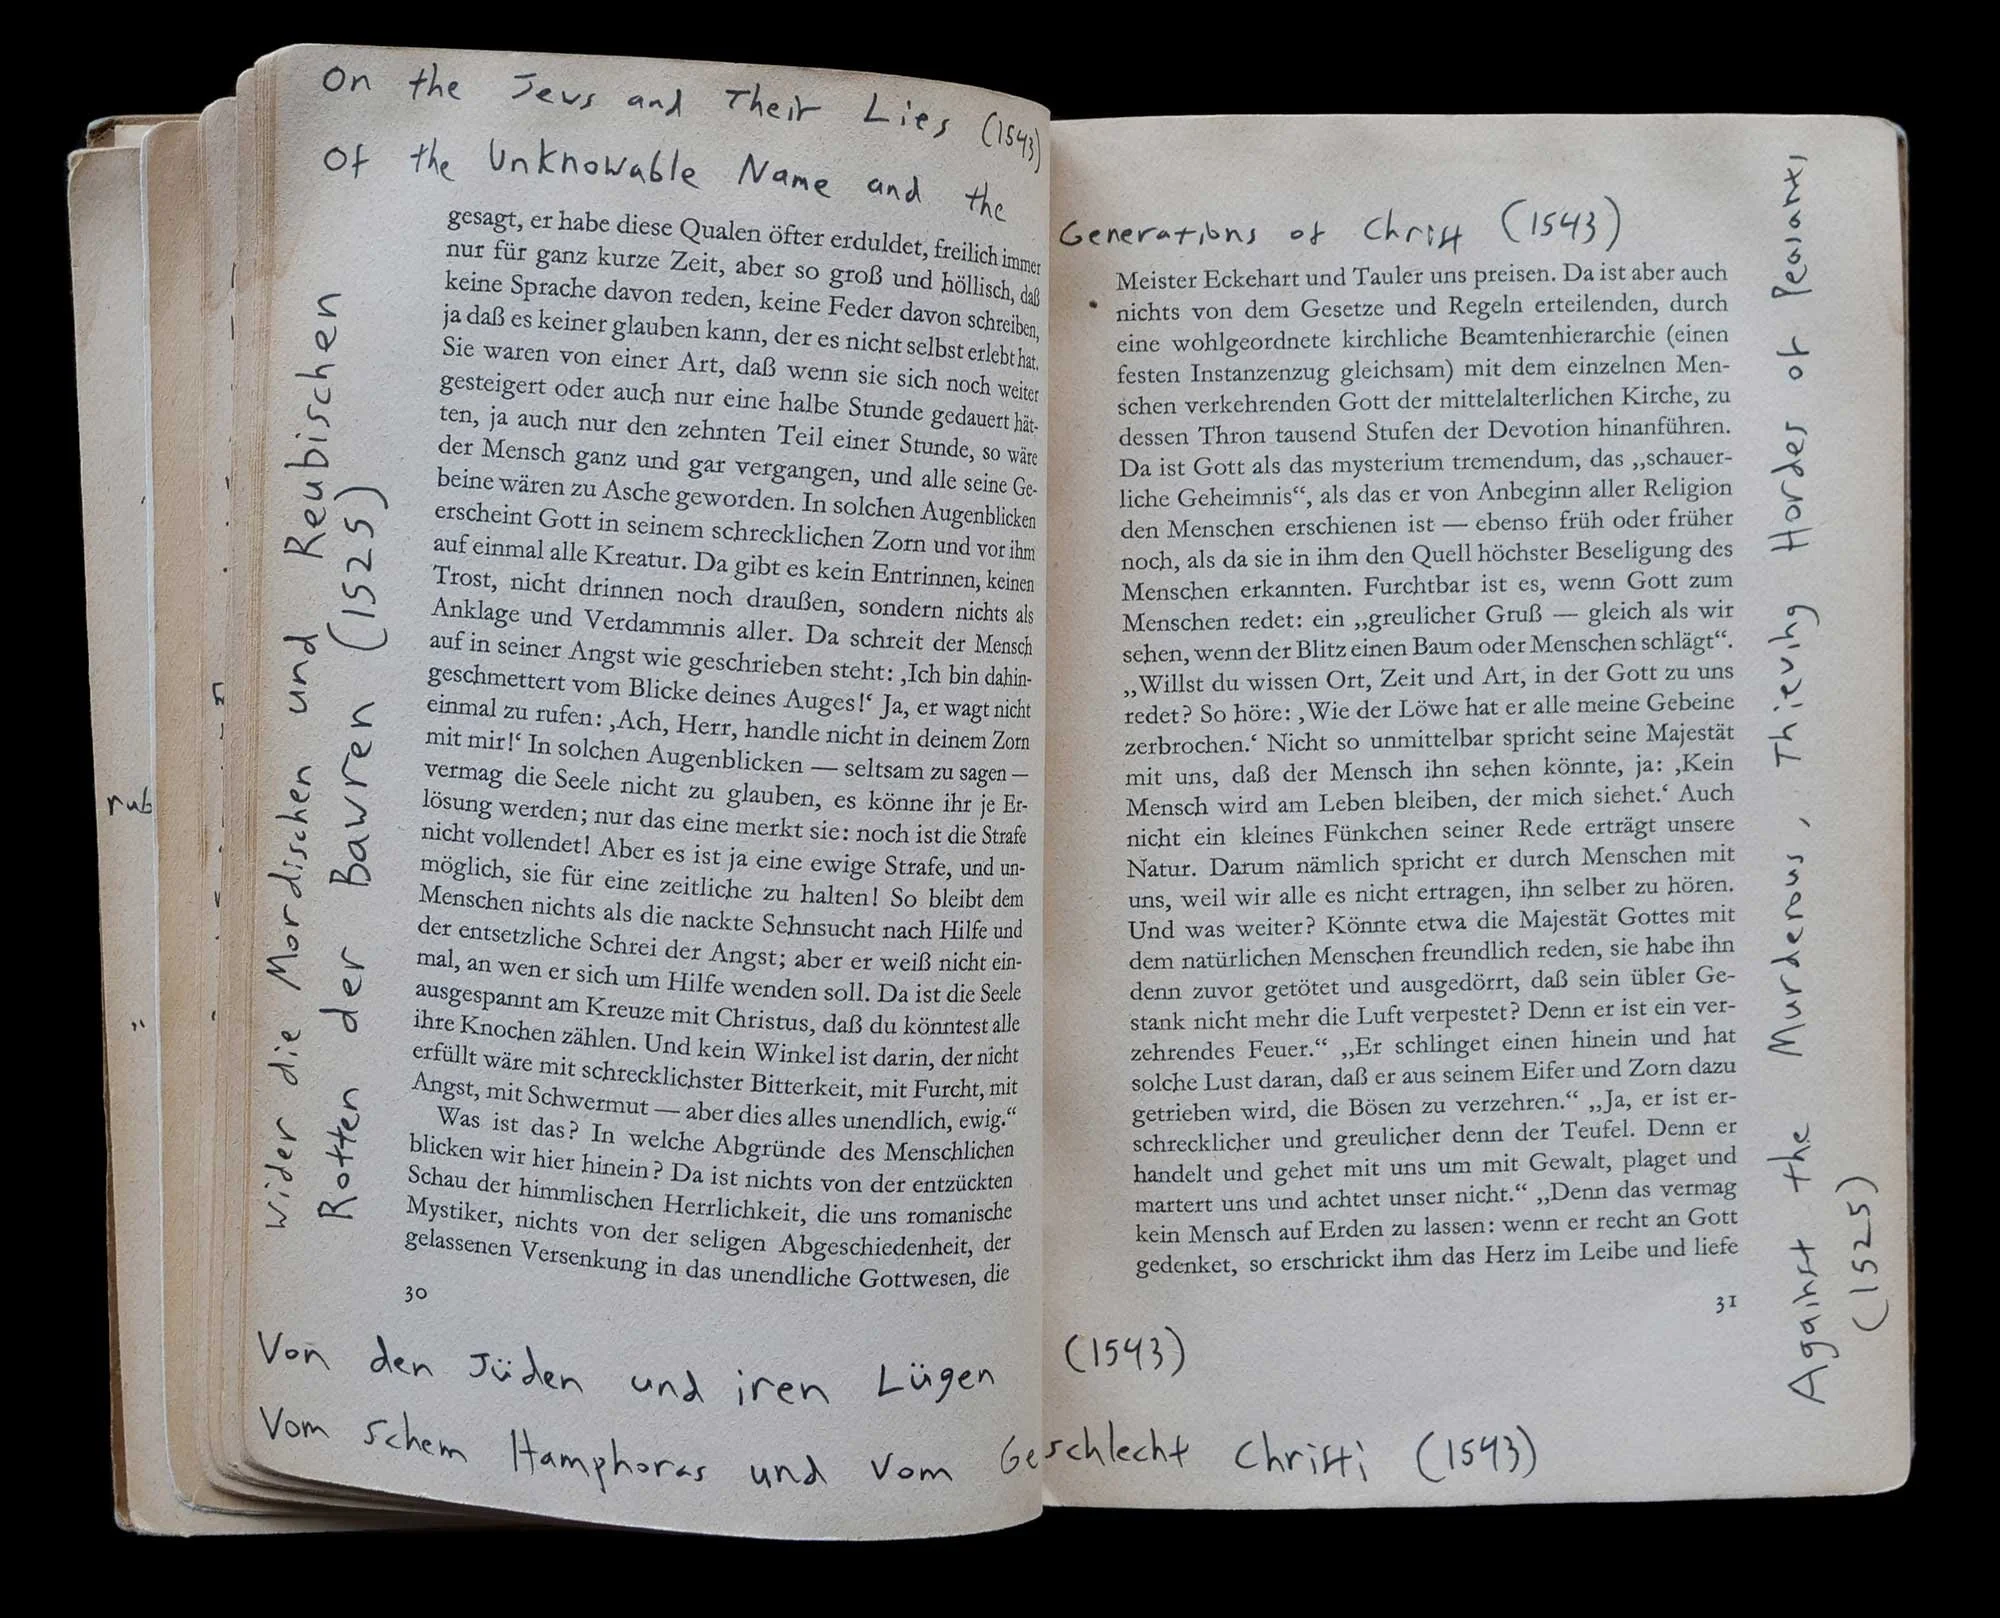 On the Jews and Their Lies (1543)
Of the Unknowable Name and the
Generations of Christ (1543)
Wider die Mordischen und Reubischen
Rotten der Bawren (1525)
gesagt, er habe diese Qualen öfter erduldet, freilich immer
nur für ganz kurze Zeit, aber so groß und höllisch, daß
keine Sprache davon reden, keine Feder davon schreiben,
ja daß es keiner glauben kann, der es nicht selbst erlebt hat.
Sie waren von einer Art, daß wenn sie sich noch weiter
gesteigert oder auch nur eine halbe Stunde gedauert hät-
ten, ja auch nur den zehnten Teil einer Stunde, so wäre
der Mensch ganz und gar vergangen, und alle seine Ge-
beine wären zu Asche geworden. In solchen Augenblicken
erscheint Gott in seinem schrecklichen Zorn und vor ihm
auf einmal alle Kreatur. Da gibt es kein Entrinnen, keinen
Trost, nicht drinnen noch draußen, sondern nichts als
Anklage und Verdammnis aller. Da schreit der Mensch
auf in seiner Angst wie geschrieben steht: ‚Ich bin dahin-
geschmettert vom Blicke deines Auges!‘ Ja, er wagt nicht
einmal zu rufen: ‚Ach, Herr, handle nicht in deinem Zorn
mit mir!‘ In solchen Augenblicken — seltsam zu sagen —
vermag die Seele nicht zu glauben, es könne ihr je Er-
lösung werden; nur das eine merkt sie: noch ist die Strafe
nicht vollendet! Aber es ist ja eine ewige Strafe, und un-
möglich, sie für eine zeitliche zu halten! So bleibt dem
Menschen nichts als die nackte Sehnsucht nach Hilfe und
der entsetzliche Schrei der Angst; aber er weiß nicht ein-
mal, an wen er sich um Hilfe wenden soll. Da ist die Seele
ausgespannt am Kreuze mit Christus, daß du könntest alle
ihre Knochen zählen. Und kein Winkel ist darin, der nicht
erfüllt wäre mit schrecklichster Bitterkeit, mit Furcht, mit
Angst, mit Schwermut — aber dies alles unendlich, ewig.“
Was ist das? In welche Abgründe des Menschlichen
blicken wir hier hinein? Da ist nichts von der entzückten
Schau der himmlischen Herrlichkeit, die uns romanische
Mystiker, nichts von der seligen Abgeschiedenheit, der
gelassenen Versenkung in das unendliche Gottwesen, die
30
Meister Eckehart und Tauler uns preisen. Da ist aber auch
nichts von dem Gesetze und Regeln erteilenden, durch
eine wohlgeordnete kirchliche Beamtenhierarchie (einen
festen Instanzenzug gleichsam) mit dem einzelnen Men-
schen verkehrenden Gott der mittelalterlichen Kirche, zu
dessen Thron tausend Stufen der Devotion hinanführen.
Da ist Gott als das mysterium tremendum, das „schauer-
liche Geheimnis“, als das er von Anbeginn aller Religion
den Menschen erschienen ist — ebenso früh oder früher
noch, als da sie in ihm den Quell höchster Beseligung des
Menschen erkannten. Furchtbar ist es, wenn Gott zum
Menschen redet: ein „greulicher Gruß — gleich als wir
sehen, wenn der Blitz einen Baum oder Menschen schlägt“.
„Willst du wissen Ort, Zeit und Art, in der Gott zu uns
redet? So höre: ‚Wie der Löwe hat er alle meine Gebeine
zerbrochen.‘ Nicht so unmittelbar spricht seine Majestät
mit uns, daß der Mensch ihn sehen könnte, ja: ‚Kein
Mensch wird am Leben bleiben, der mich siehet.‘ Auch
nicht ein kleines Fünkchen seiner Rede erträgt unsere
Natur. Darum nämlich spricht er durch Menschen mit
uns, weil wir alle es nicht ertragen, ihn selber zu hören.
Und was weiter? Könnte etwa die Majestät Gottes mit
dem natürlichen Menschen freundlich reden, sie habe ihn
denn zuvor getötet und ausgedörrt, daß sein übler Ge-
stank nicht mehr die Luft verpestet? Denn er ist ein ver-
zehrendes Feuer.“ „Er schlinget einen hinein und hat
solche Lust daran, daß er aus seinem Eifer und Zorn dazu
getrieben wird, die Bösen zu verzehren.“ „Ja, er ist er-
schrecklicher und greulicher denn der Teufel. Denn er
handelt und gehet mit uns um mit Gewalt, plaget und
martert uns und achtet unser nicht.“ „Denn das vermag
kein Mensch auf Erden zu lassen: wenn er recht an Gott
gedenket, so erschrickt ihm das Herz im Leibe und liefe
31
Against the Murderous, Thieving Hordes of Peasants
(1525)
Von den Jüden und iren Lügen (1543)
Vom Schem Hamphoras und vom Geschlecht Christi (1543)
rub